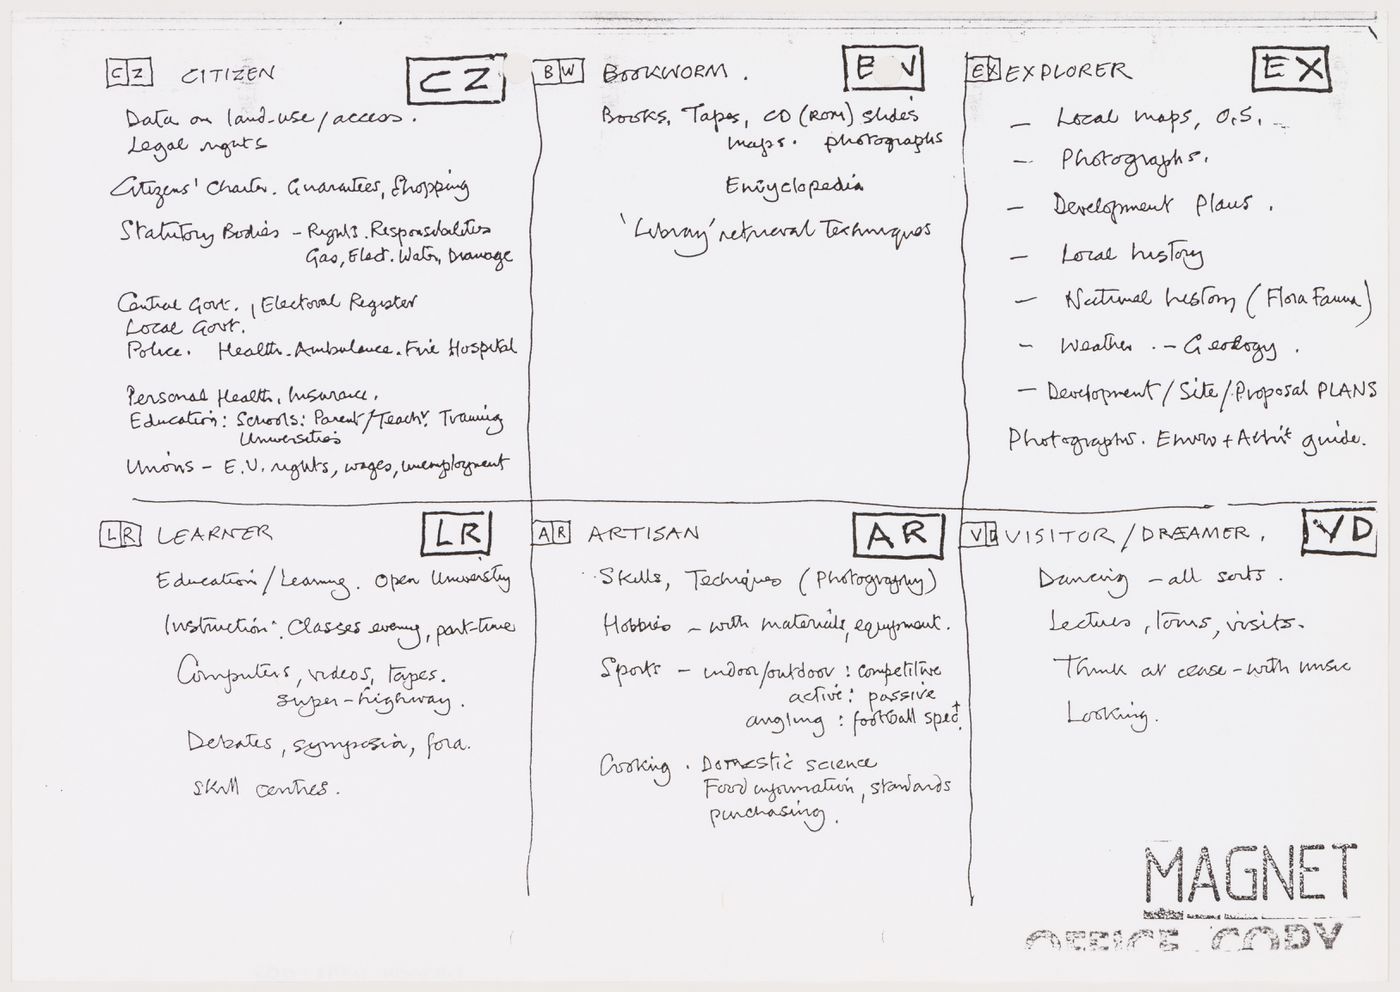 CZ CITIZEN CZ
Data on land-use/access.
Legal rights
Citizens' Charter. Guarantees, Shopping
Statutory Bodies - Rights. Responsibilities
Gas, Elect. Water, Drainage
Central Govt. , Electoral Register
Local Govt.
Police. Health. Ambulance. Fire Hospital
Personal Health, Insurance.
Education: Schools: Parent/Teachr. Training
Universities
Unions - E.U. rights, wages, unemployment
BW BOOKWORM. B
Books, Tapes, CD (ROM) slides
maps. photographs
Encyclopedia
'Library' retrieval Techniques
EX EXPLORER EX
- Local maps, O.S.
- Photographs.
- Development Plans.
- Local history
- Natural history (Flora Fauna)
- Weather. - Geology.
- Development/Site/Proposal PLANS
Photographs. Enviro + Archit guide.
LR LEARNER LR
Education/Learning. Open University
Instruction: Classes evening, part-time
Computers, videos, tapes.
super-highway.
Debates, symposia, fora.
Skill centres.
AR ARTISAN AR
Skills, Techiques (Photography)
Hobbies - with materials, equipment.
Sports - indoor/outdoor : competitive
active : passive
angling : football spect.
Cooking. Domestic science
Food information, standards
purchasing.
VD VISITOR/DREAMER. VD
Dancing - all sorts.
Lectures, tours, visits.
Think at ease - with music
Looking.
MAGNET
OFFICE COPY